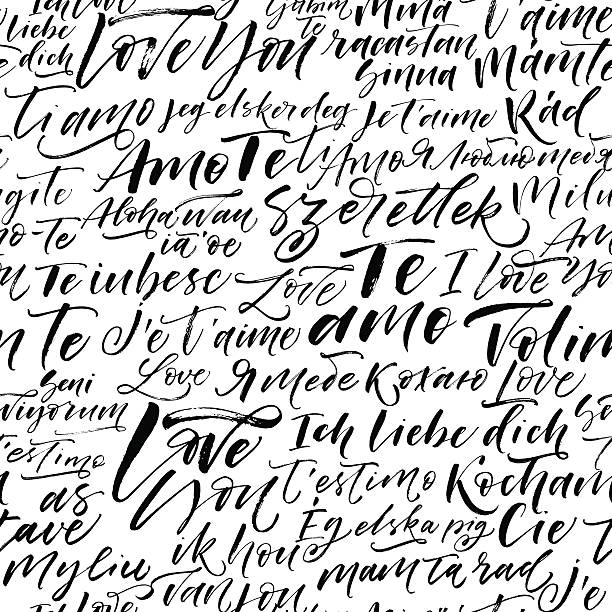 Ich liebe dich
Love You
Gåbim te
Mină racastan
t'aime
sinna Mamt
ti amo
Jeg elsker deg
Je t'aime
Rád
Amo Te
Ti Amo
Я люблю тебя
gite
Aloha wau
iā 'oe
Szeretlek
Milu
mo-te
Am
Te iubesc
Love
Te
amo
I love Yo
m te
J'e t'aime
Volim
Seni
viyorum
Love
Я тебе кохаю
Love
t'estimo
Love
You
Ich liebe dich
t'estimo
Kocham
Cie
as
tave
Ég elska þig
Myliu
ik hou
van jou
mam ta rad
j'e
Ich
Love